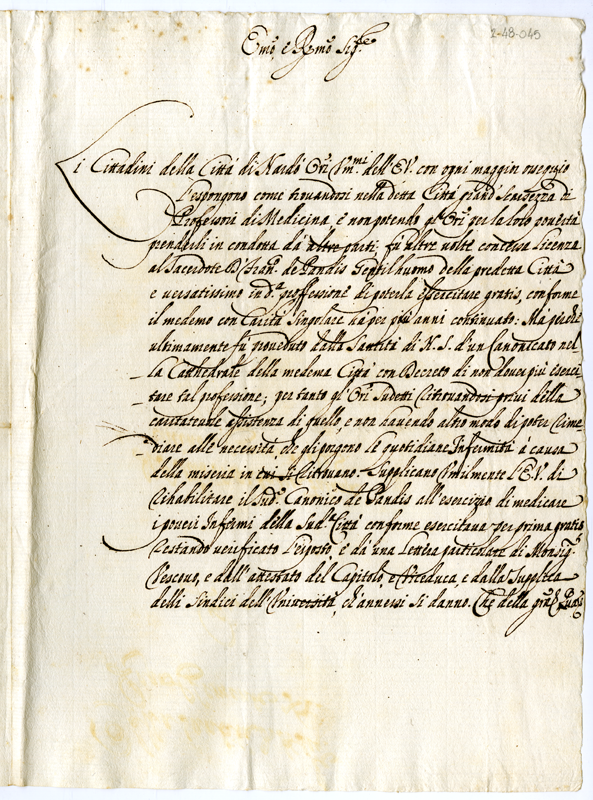 2-48-045
Emo, e Rmo Sigre
Li Cittadini della Città di Nardò Ori Vmmi dell'E.V. con ogni maggior ossequio
l'espongono come trovandosi nella detta Città grand scarsezza di
Professori di Medicina, e non potendo gl'Ori per la loro povertà
prenderli in condotta da altre parti, fù altre volte concessa licenza
al Sacerdote D. Fran. de Pandis Gentilhuomo della predetta Città
e versatissimo in da professione di poterla essercitare gratis, conforme
il medemo con Carità singolare và per più anni continuato: Mà perche
ultimamente fù proveduto dalla Santità di N.S. d'un Canonicato nel-
la Cathedrale della medema Città con Decreto di non dover più eserci-
tare tal professione; per tanto gl'Ori sudetti ritrovandosi privi della
caritatevole assistenza di quello, e non havendo altro modo di poter rime-
diare alle necessità, che gli pongono le quotidiane Infermità à causa
della miseria in cui si ritrovano. Supplicano humilmente l'E.V. di
rehabilitare il sudo Canonico de Pandis all'esercizio di medicare
i poveri Infermi della suda Città conforme esercitava per prima gratis
restando verificato l'esposto, e da una lettera particolare di Monsigr
Vescovo, e dall'attestato del Capitolo, e dalla supplica
delli Sindici dell'Università, ch'annessi si danno. Che della gra